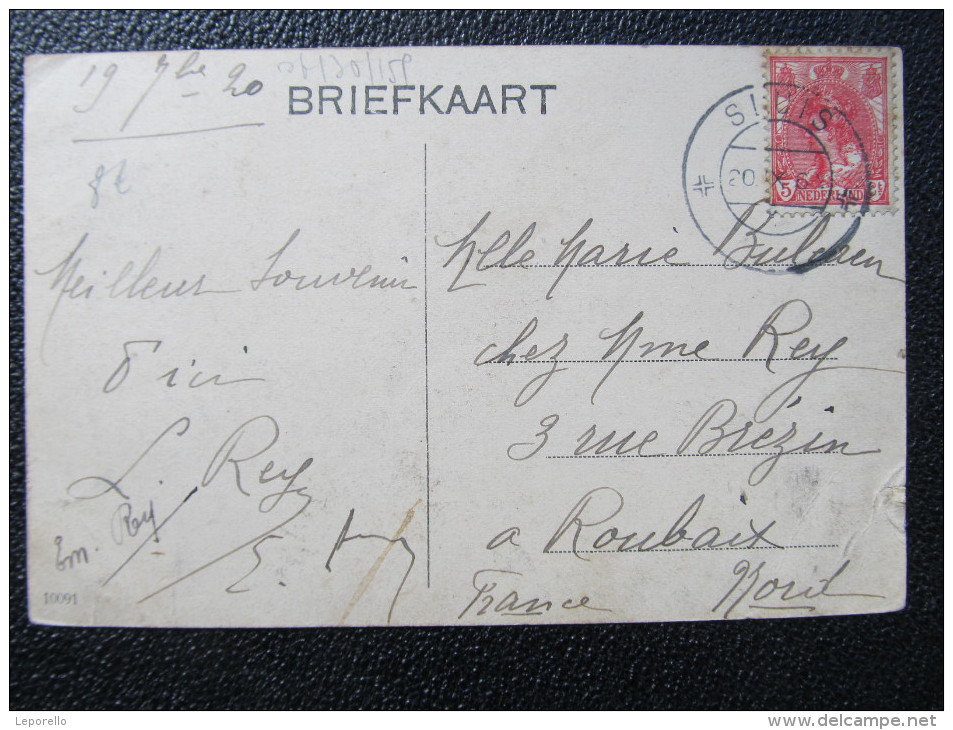 19 7bre 20
BRIEFKAART
SLUIS
20
5
NEDERLAND
8t
Meilleur Souvenir
d'ici
L. Rey
Em. Rey
E.
10091
Mlle Marie
chez Mme Rey
3 rue Brézin
a Roubaix
France Nord
Leporello
www.delcampe.net